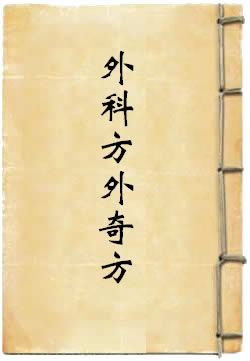 外科方外奇方